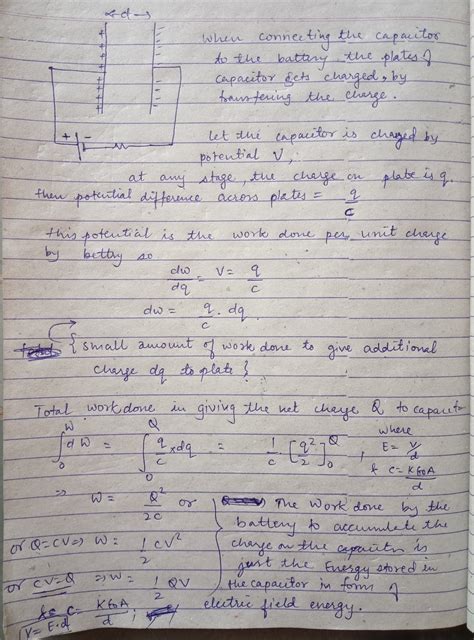 d
When connecting the capacitor
to the battery the plates of
capacitor gets charged, by
transfering the charge.
Let the capacitor is charged by
potential V,
at any stage, the charge on plate is q.
then potential difference across plates = q/c
this potential is the work done per unit charge
by bettry so
dw/dq = V = q/c
dw = q/c . dq
{ small amount of work done to give additional
charge dq to plate }
Total work done in giving the net charge Q to capacit
∫₀ᵂ dW = ∫₀Q q/c × dq = 1/c [q²/2]₀Q , where E = V/d & C = Kε₀A/d
⇒ W = Q²/2C or
or Q = CV ⇒ W = 1/2 CV²
or CV = Q ⇒ W = 1/2 QV
C = Kε₀A/d ;
V = E.d
The work done by the
battery to accumulate the
charge on the capacitor is
just the Energy stored in
the capacitor in form of
electric field energy.